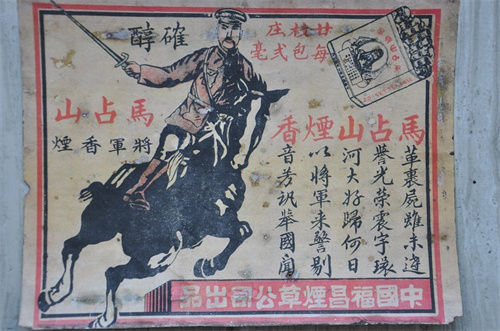 確醇
廿枝庄
每包弍毫
馬占山
將軍香煙
馬占山煙香
革裹屍雖未遑
譽光榮震宇環
河大好歸何日
以將軍來警剔
音若訊舉國聞
中國福昌煙草公司出品